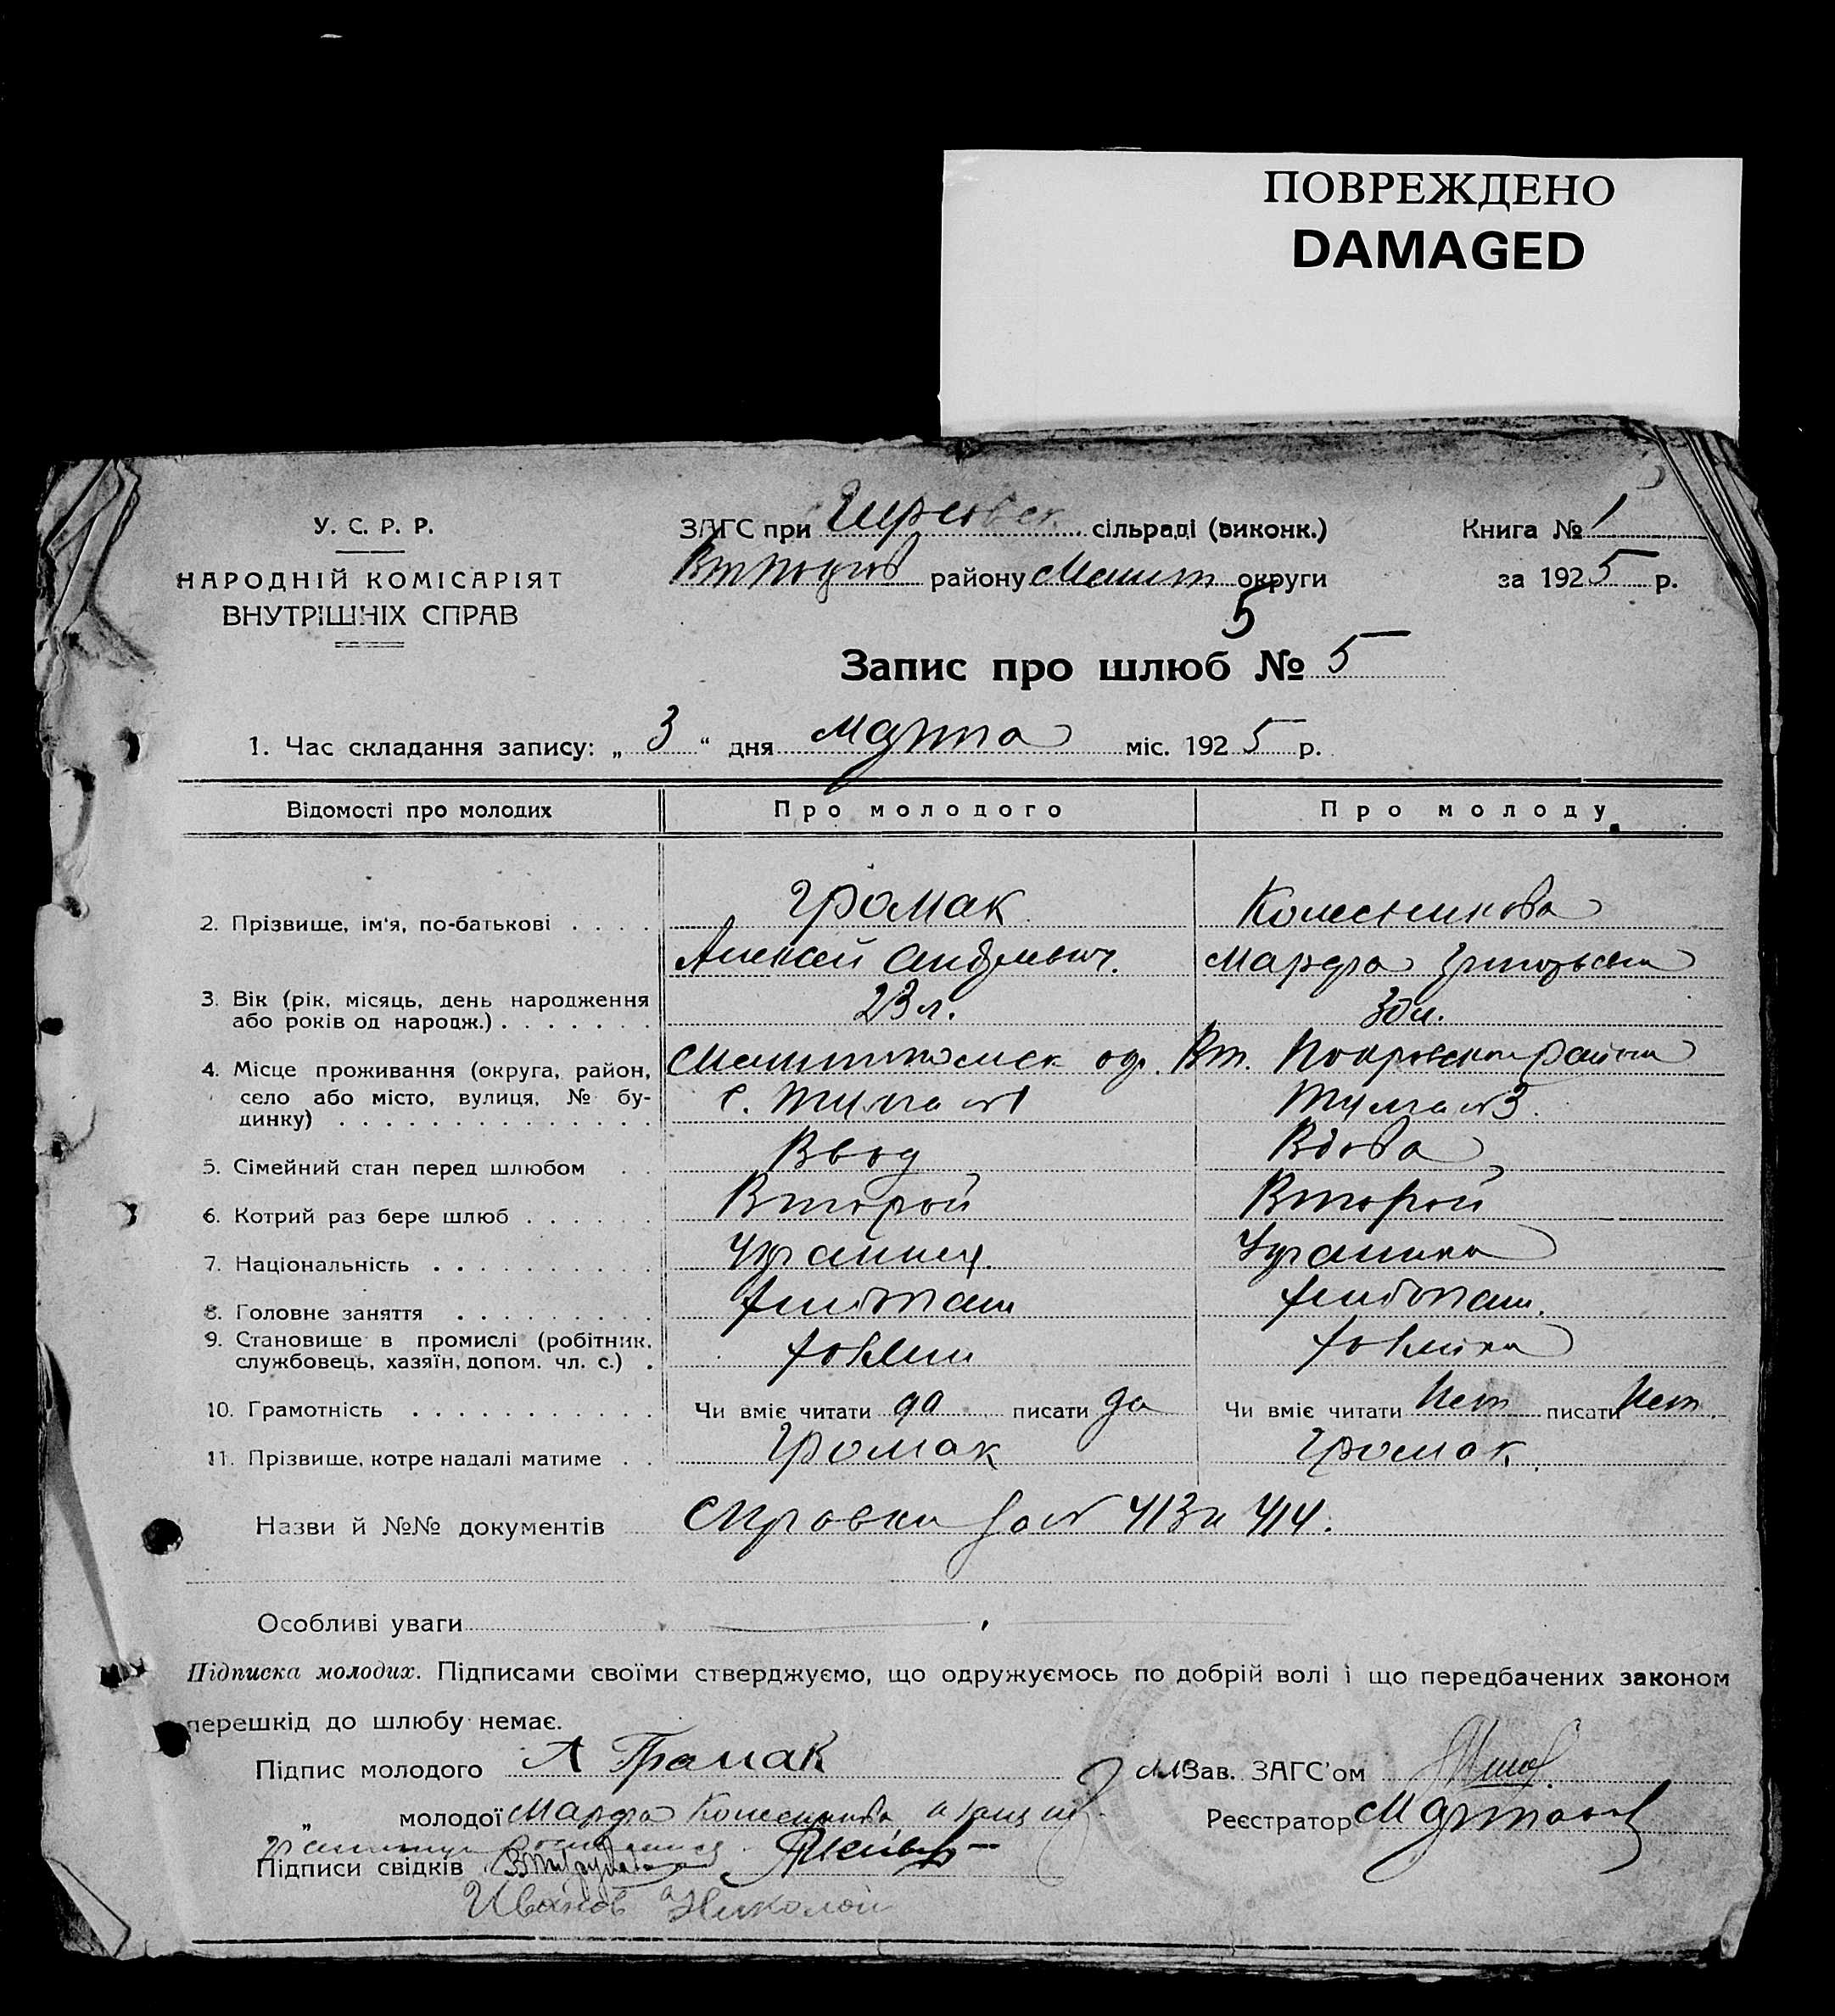 ПОВРЕЖДЕНО
DAMAGED
У. С. Р. Р.
НАРОДНІЙ КОМІСАРІЯТ
ВНУТРІШНІХ СПРАВ
ЗАГС при сільраді (виконк.)
району Мелит округи
Книга № 1
за 1925 р.
5
Запис про шлюб № 5
1. Час складання запису: „ 3 “ дня марта міс. 1925 р.
Відомості про молодих Про молодого Про молоду
2. Прізвище, ім‘я, по-батькові Громак Колесникова
Алексей Андреевич. Марфа Григорьевна
3. Вік (рік, місяць, день народження
або років од народж.) 23 л. 30 л.
4. Місце проживання (округа, район, Мелитопольск окр. Вт. Покровского района
село або місто, вулиця, № бу-
динку) с. №1 №3.
5. Сімейний стан перед шлюбом Вдова
6. Котрий раз бере шлюб Второй Второй
7. Національність Украинец. Украинка
8. Головне заняття
9. Становище в промислі (робітник,
службовець, хазяїн, допом. чл. с.)
10. Грамотність Чи вміє читати да писати да Чи вміє читати Нет писати Нет.
11. Прізвище, котре надалі матиме Громак Громак.
Назви й №№ документів Справки за № 413 и 414.
Особливі уваги
Підписка молодих. Підписами своїми стверджуємо, що одружуємось по добрій волі і що передбачених законом
перешкід до шлюбу немає.
Підпис молодого А Грамак Зав. ЗАГС‘ом
„ молодої Марфа Колесникова, а за нее Реєстратор
Підписи свідків
Иванов Николай